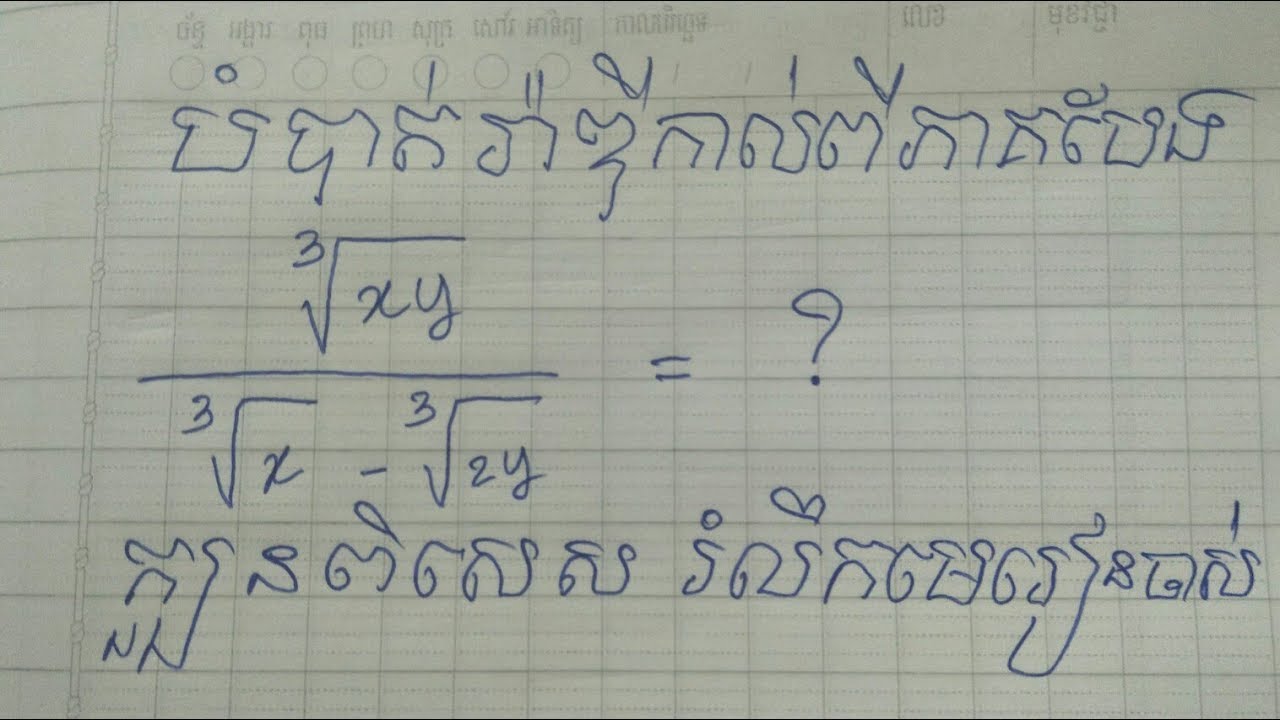 ច័ន្ទ អង្គារ ពុធ ព្រហ សុក្រ សៅរ៍ អាទិត្យ កាលបរិច្ឆេទ លេខ មុខវិជ្ជា
បំបាត់រ៉ាឌីកាល់ពីភាគបែង
∛(xy) / (∛x - ∛(2y)) = ?
ក្បួនពិសេស រំលឹកមេរៀនចាស់